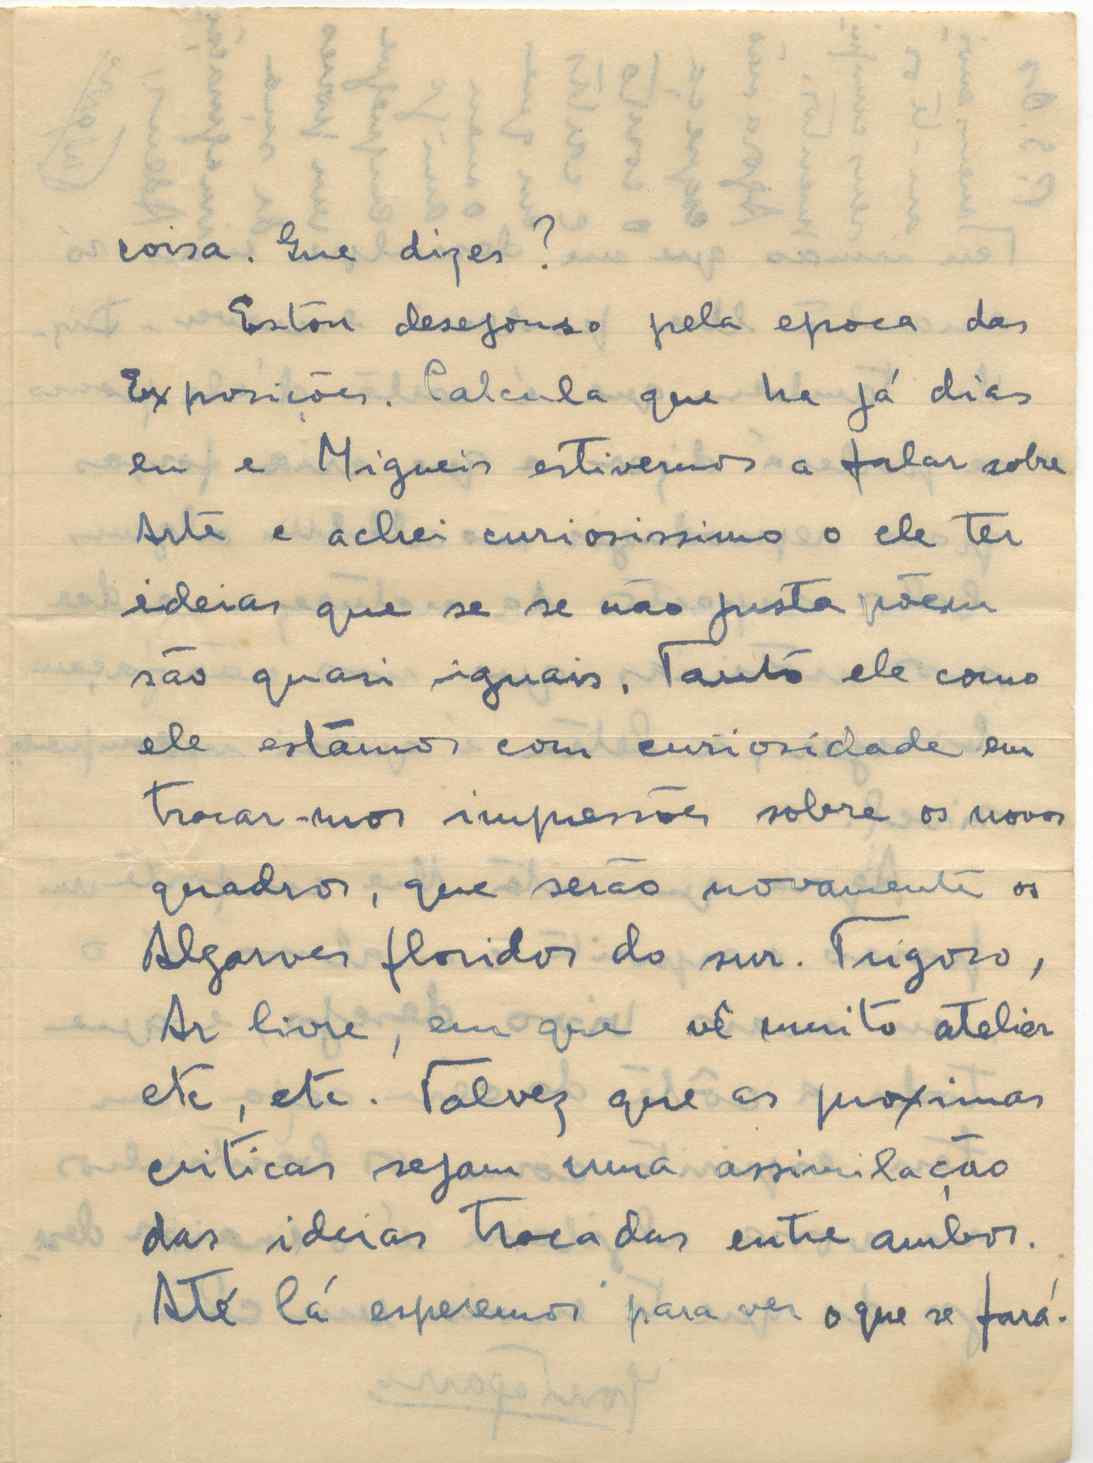 coisa. Que dizes?
Estou desejoso pela epoca das
Exposições. Calcula que ha já dias
eu e Migueis estivemos a falar sobre
Arte e achei curiosissimo o ele ter
ideias que se se não justa põem
são quasi iguais. Tanto ele como
ele estâmos com curiosidade em
trocar-mos impressões sobre os novos
quadros, que serão novamente os
Algarves floridos do sur. Trigoso,
Ar livre, em que vê muito atelier
etc, etc. Talvez que as proximas
criticas sejam uma assimilação
das ideias trocadas entre ambos.
Até lá esperemos para ver o que se fará.